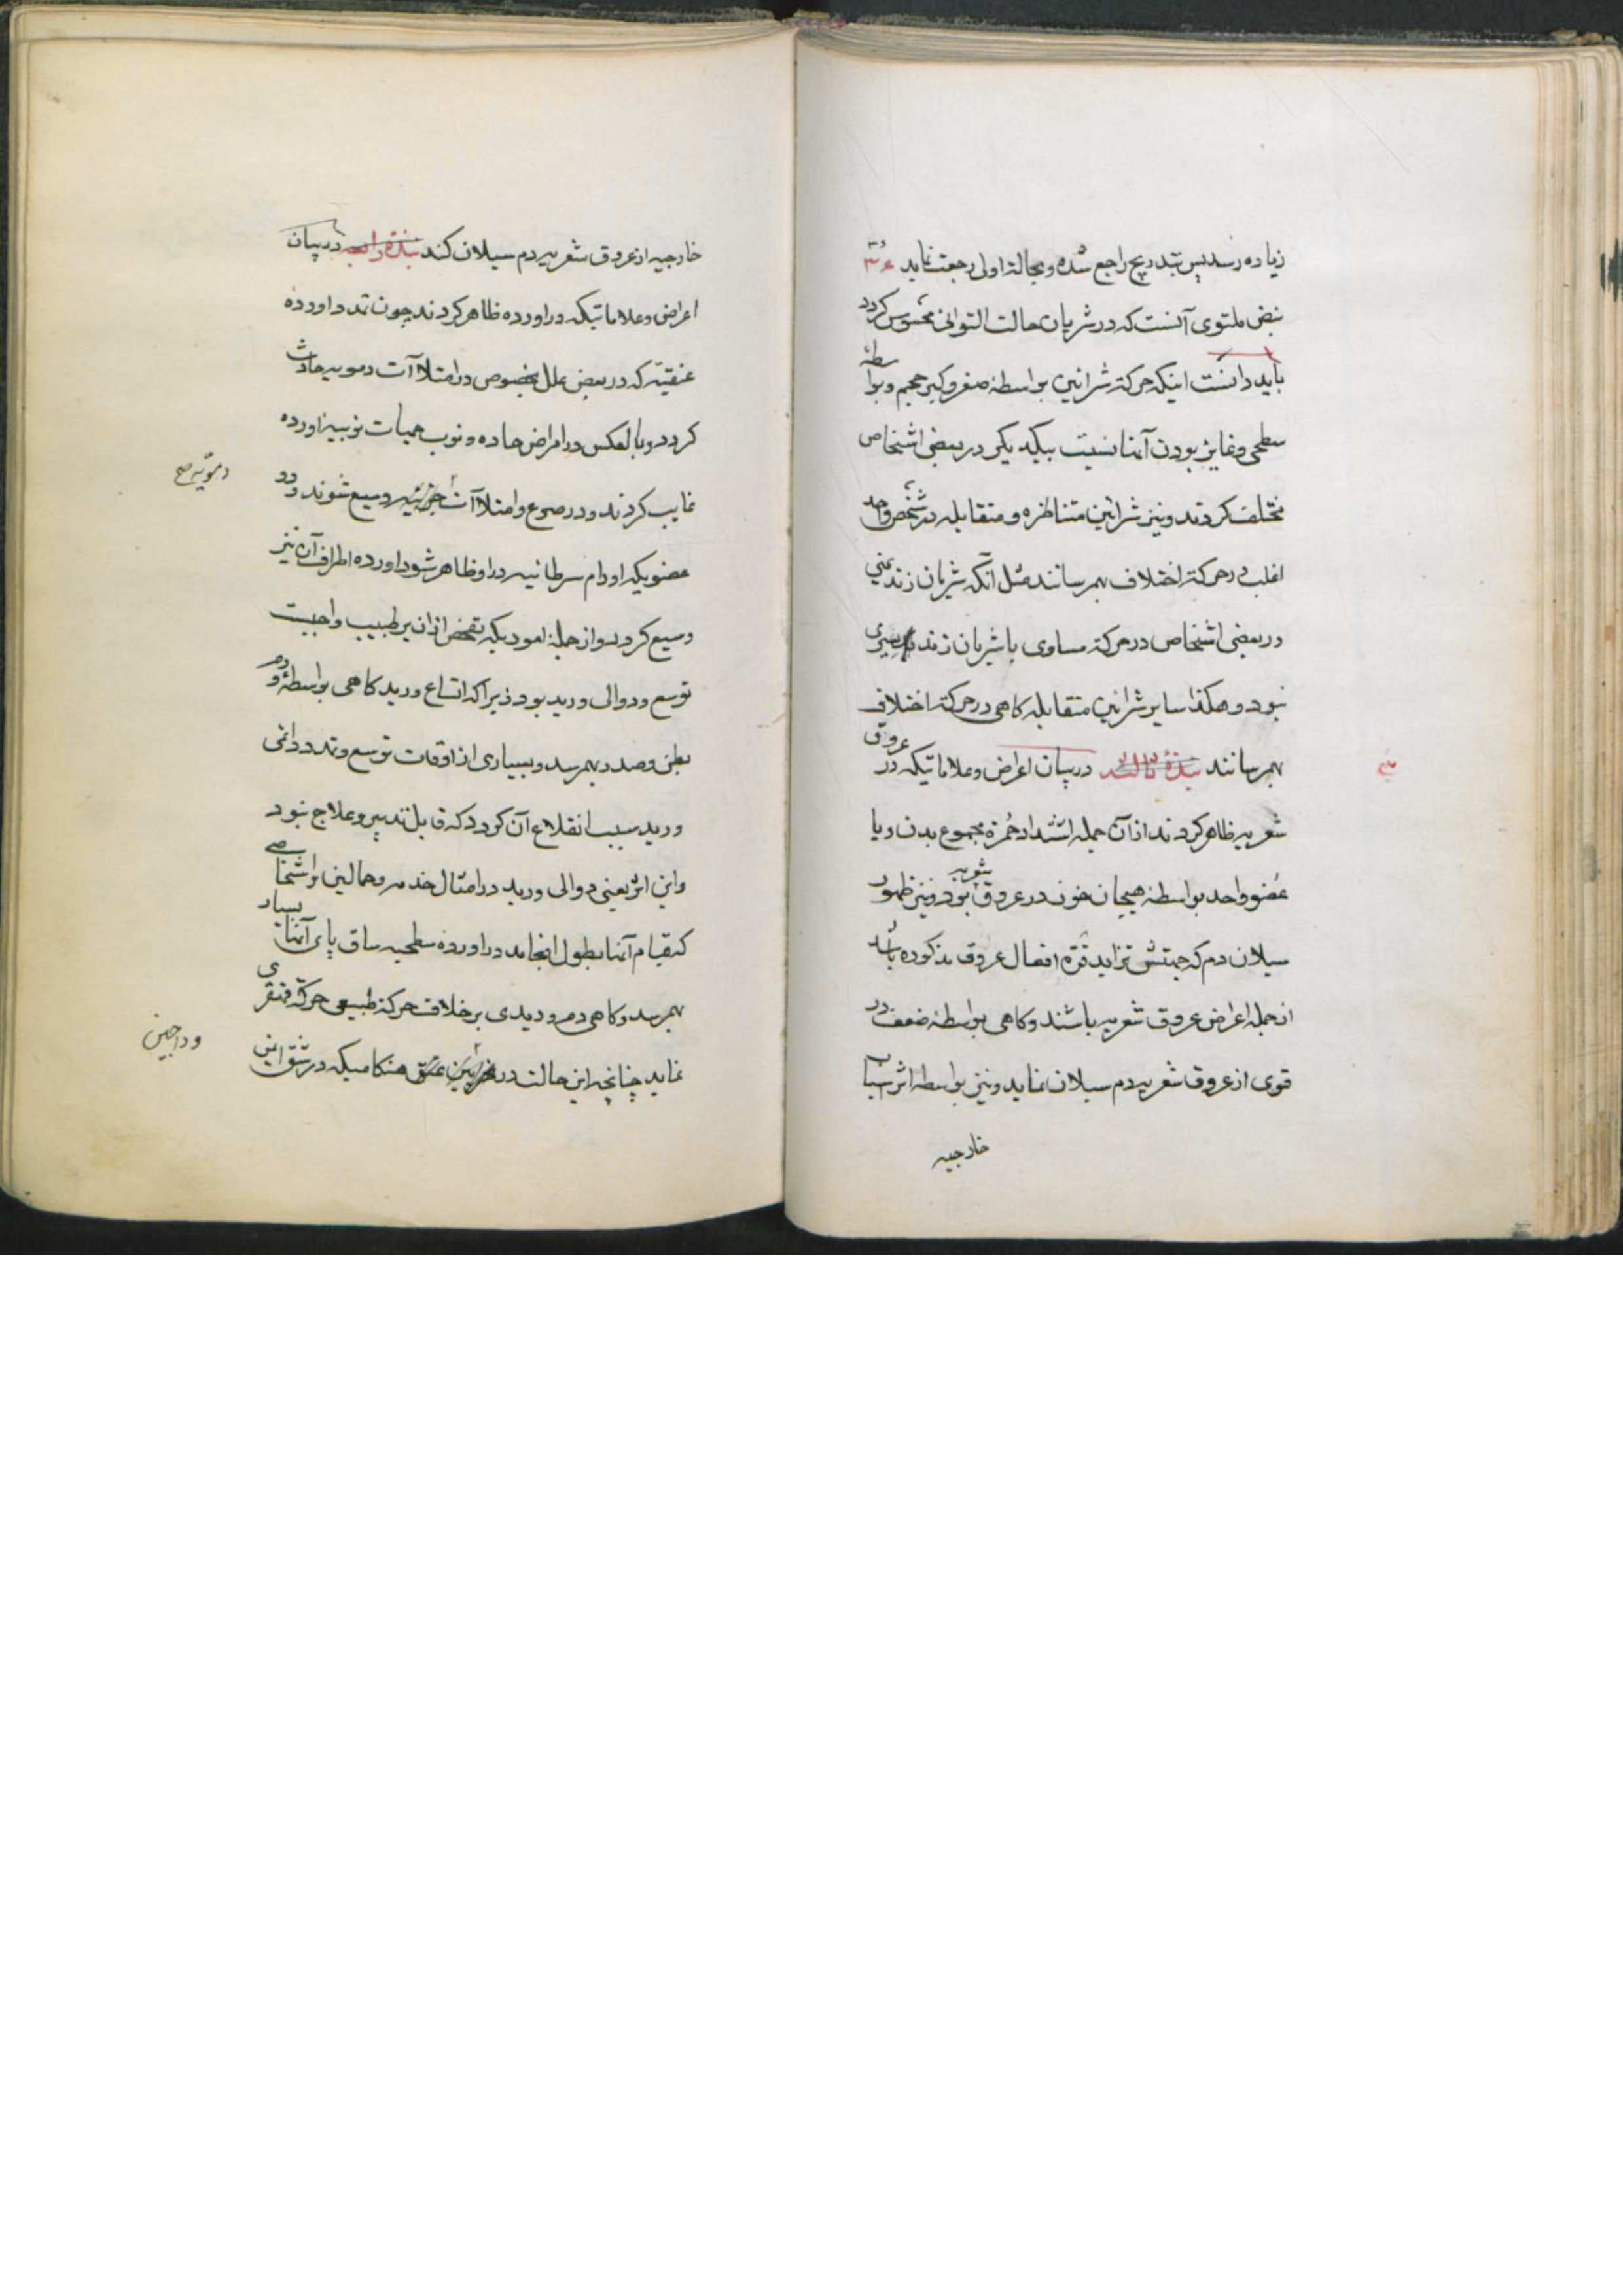 زیاده رسد پس بتدریج راجع شده و بحالة اولی رجعت نماید ۳۴
نبض ملتوی آنست که در شریان حالت التوائی محسوس کردد
باید دانست اینکه حرکة شرائین بواسطۀ صغر و کبر حجم و بواسطۀ
سطحی و غایر بودن آنها نسبت بیکدیکر در بعضی اشخاص
مختلف کردند و نیز شرائین متناظره و متقابله در شخص واحد
اغلب در حرکة اختلاف بهمرسانند مثل آنکه شریان زند یمنی
در بعضی اشخاص در حرکة مساوی با شریان زند یسری
نبود و هکذا سایر شرائین متقابله کاهی در حرکة اختلاف
بهمرسانند نبذۀ ثالثه در بیان اعراض و علاماتیکه در عروق
شعریه ظاهر کردند از آن جمله اشتداد حمرة مجموع بدن و یا
عضو واحد بواسطۀ هیجان خون در عروق شعریه بود و نیز ظهور
سیلان دم که جهتش تزاید قوة افعال عروق مذکوره باشد
از جمله اعراض عروق شعریه باشند و کاهی بواسطۀ ضعف در
قوی از عروق شعریه دم سیلان نماید و نیز بواسطه اثر اسباب
خارجیه
خارجیه از عروق شعریه دم سیلان کند نبذۀ رابعه در بیان
اعراض و علاماتیکه در اورده ظاهر کردند چون تمدد اورده
عنقیّه که در بعض علل بخصوص در امتلاآت دمویه حادث
کردد و بالعکس در امراض حاده و نوب حمیات نوبیه اورده
غایب کردند و در صرع و امتلاآت وسیع شوند و در
دمویّه صح
عضویکه اورام سرطانیه در او ظاهر شود اورده اطراف آن نیز
وسیع کردد و از جملۀ امور دیکه تفحص از آن بر طبیب واجبست
توسع و دوالی ورید بود زیراکه اتساع ورید کاهی بواسطۀ ورم
بطن و صدر بهمرسد و بسیاری از اوقات توسع و تمدد دائمی
ورید سبب انقلاع آن کردد که قابل تدبیر و علاج نبود
و این اثر یعنی دوالی ورید در امثال خدمه و حمالین و اشخاصی
که قیام آنها بطول انجامد در اورده سطحیه ساق پای آنها بسیار
بهمرسد و کاهی دم وریدی بر خلاف حرکة طبیعی حرکة قهقری
نماید چنانچه این حالت در عنق هنکامیکه در شق ایمن
وداجین